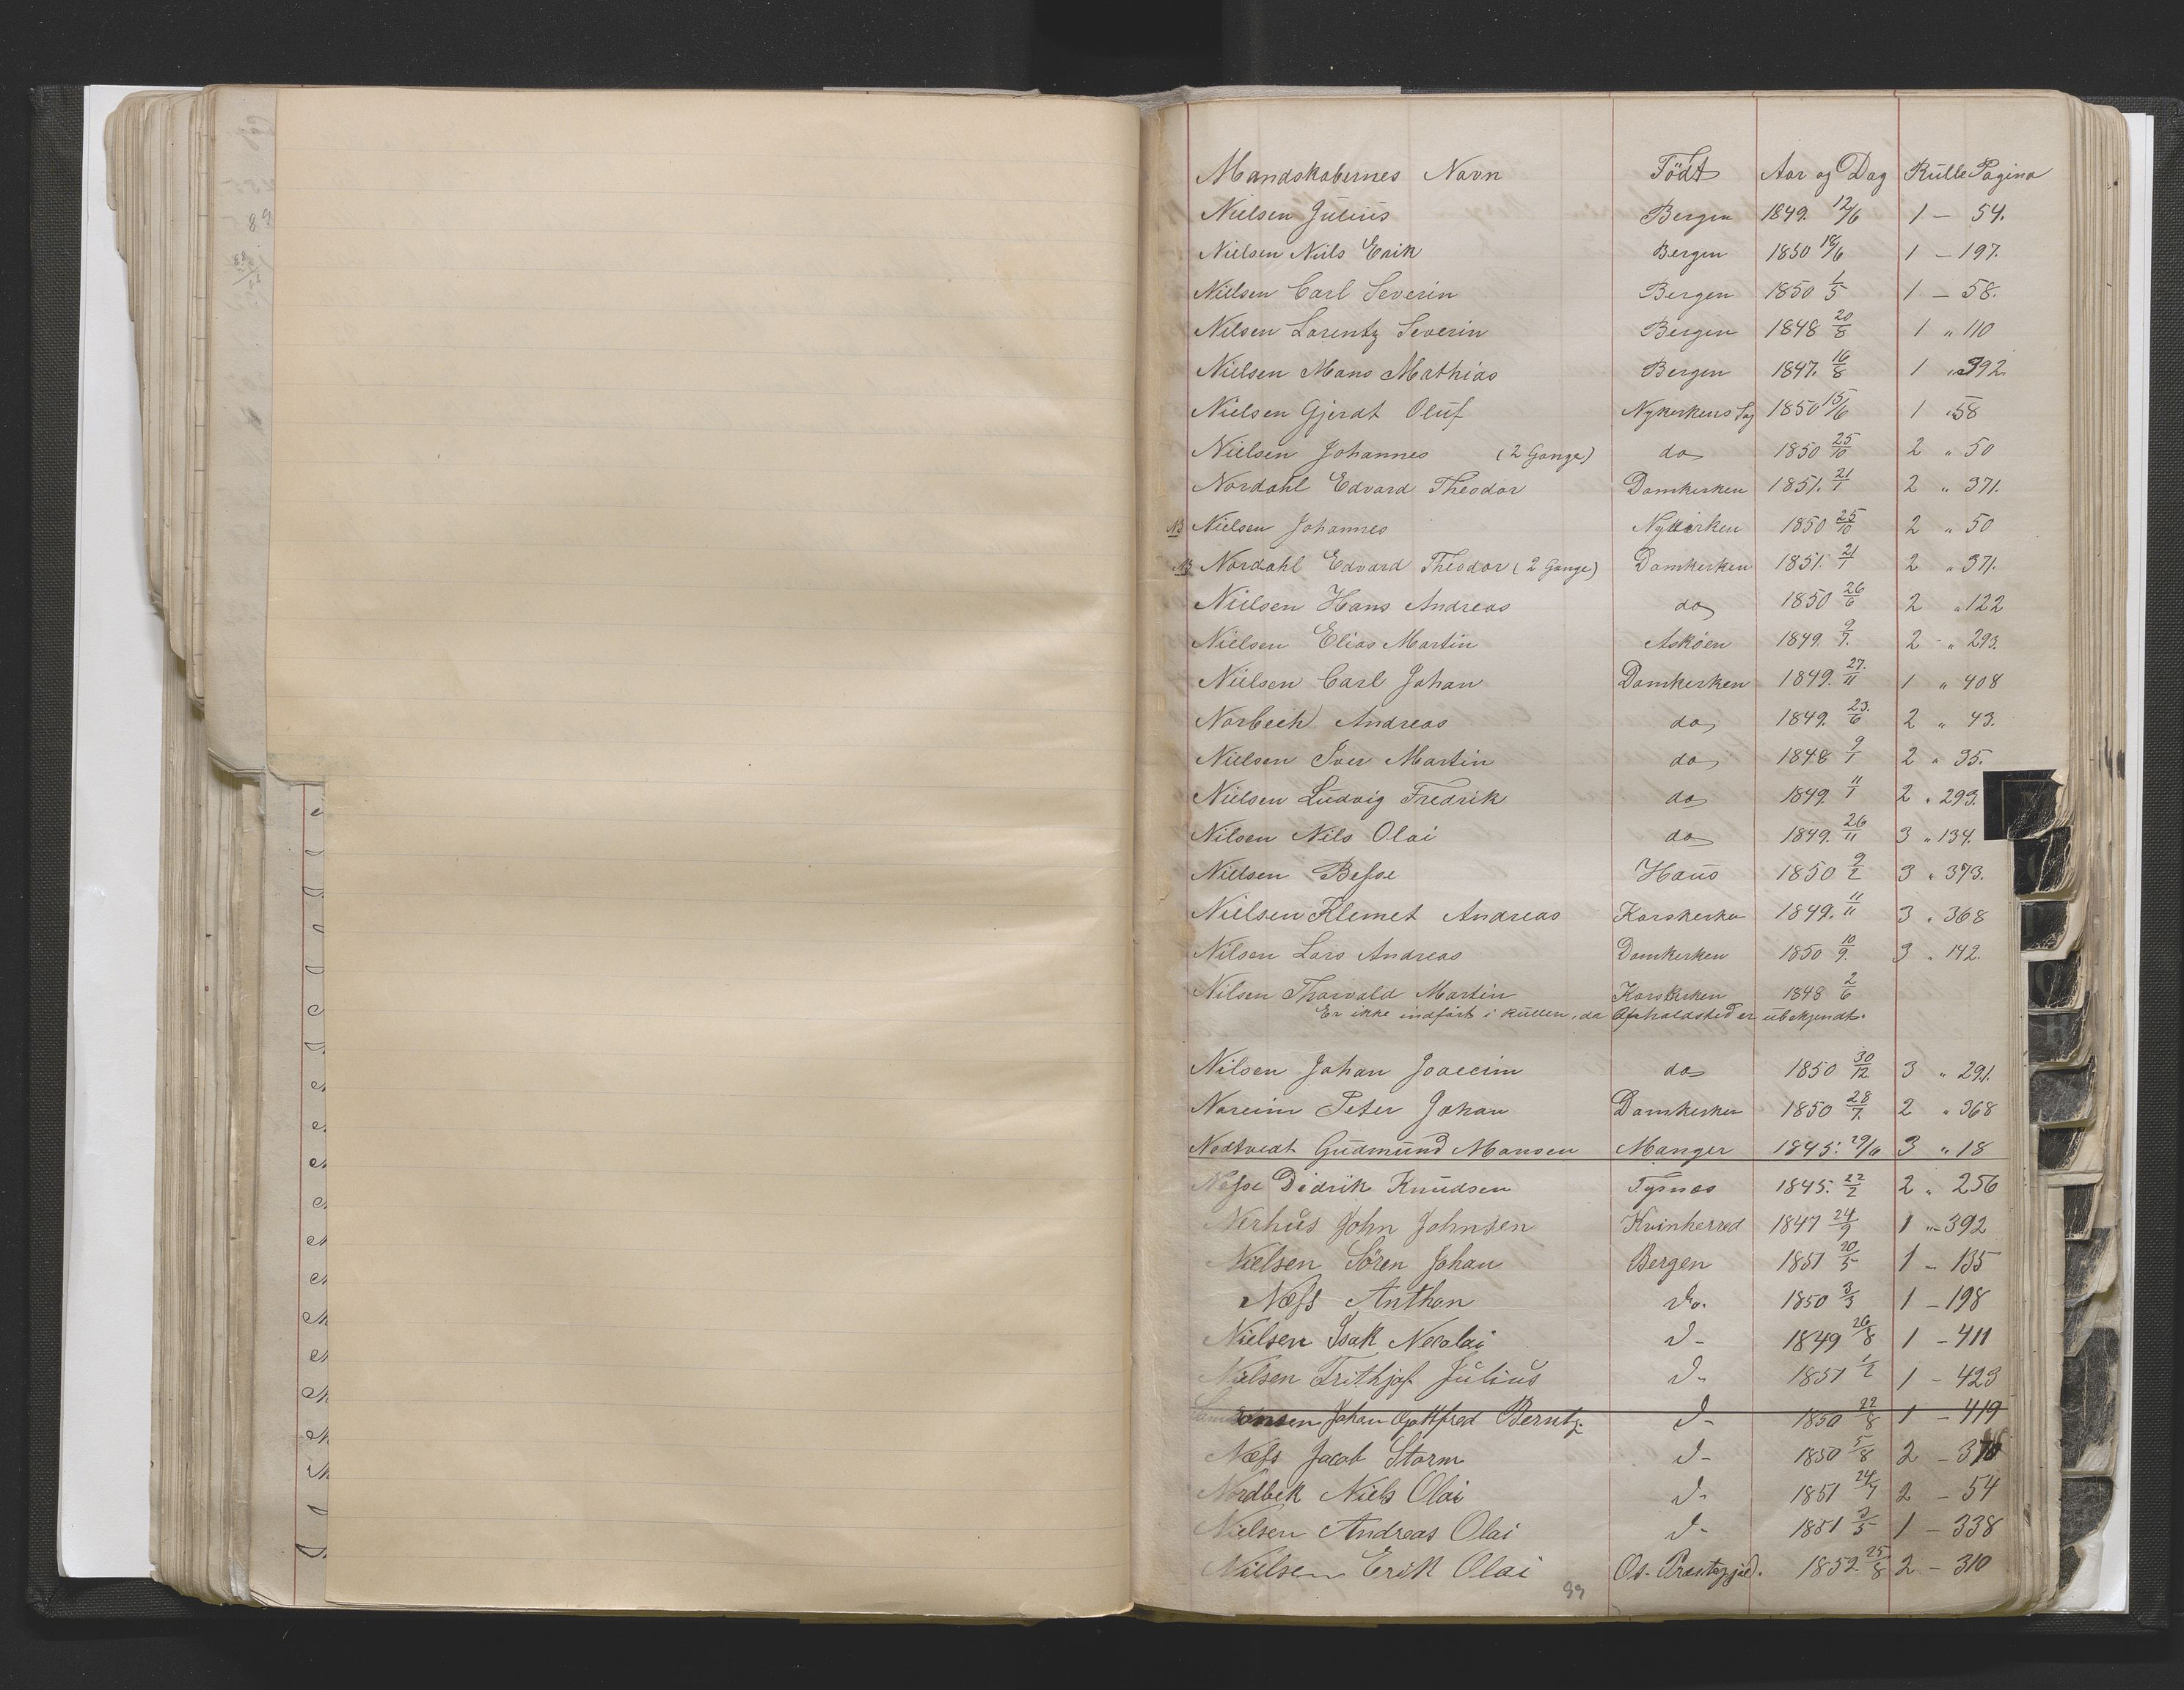 Mandskabernes Navn Födt Aar og Dag Rulle Pagina
Nielsen Julius Bergen 1849. 12/6 1 - 54.
Nielsen Niels Erik Bergen 1850 18/6 1 - 197.
Nielsen Carl Severin Bergen 1850 1/5 1 - 58.
Nilsen Lorentz Severin Bergen 1848 20/8 1 " 110
Nielsen Mons Mathias Bergen 1847. 16/8 1 " 392
Nielsen Gjerdt Oluf Nykerkens Sog 1850 15/6 1 " 58
Nielsen Johannes (2 Gange) do 1850 25/10 2 " 50
Nordahl Edvard Theodor Domkerken 1851. 21/1 2 " 371.
NB Nielsen Johannes Nykirken 1850 25/10 2 " 50
NB Nordahl Edvard Theodor (2 Gange) Domkerken 1851. 21/1 2 " 371.
Nielsen Hans Andreas do 1850 26/6 2 " 122
Nielsen Elias Martin Asköen 1849. 9/7. 2 - " 293.
Nielsen Carl Johan Domkerken 1849. 27./11 1 " 408
Norbech Andreas do 1849. 23./6 2 " 43.
Nielsen Iver Martin do 1848 9/1 2 " 35.
Nielsen Ludvig Fredrik do 1849. 11/1 2 " 293.
Nilsen Nils Olai do 1849. 26/11 3 " 134.
Nielsen Besse Haus 1850 9/2 3 " 373.
Nielsen Klemet Andreas Korskerke 1849. 11/11 3 " 368
Nilsen Lars Andreas Domkerken 1850 10/9. 3 " 142.
Nilsen Thorvald Martin Korskirken 1848 2/6
Er ikke indfört i Rullen, da Opholdsted er ubekjendt.
Nilsen Johan Joacim do 1850 30/12 3 " 291.
Noreim Peter Johan Domkerken 1850 28/7. 2 " 368
Nodtvedt Gudmund Monsen Manger 1845: 29/6 3 " 18
Nesse Didrik Knudsen Tysnes 1845. 22/2 2 " 256
Nerhus John Johnsen Kvinherred 1847 24/9 1 " - 392
Nielsen Sören Johan Bergen 1851 20/5 1 - 135
Næss Anthon Do. 1850 3/3 1 - 198
Nielsen Isak Nicolai D - 1849 26/8 1 - 411
Nielsen Frithjof Julius D - 1851 1/2 1 - 423
Johan Gottfred Berntz. D - 1850 22/8 1 - 419
Næss Jacob Storm D - 1850 5/8 2 -
Nordbek Niels Olai D - 1851 24/7 2 - 54
Nielsen Andreas Olai D - 1851 3/5 1 - 338
Nielsen Erik Olai Os. Præstegjeld. 1852 25/8 2 - 310
99